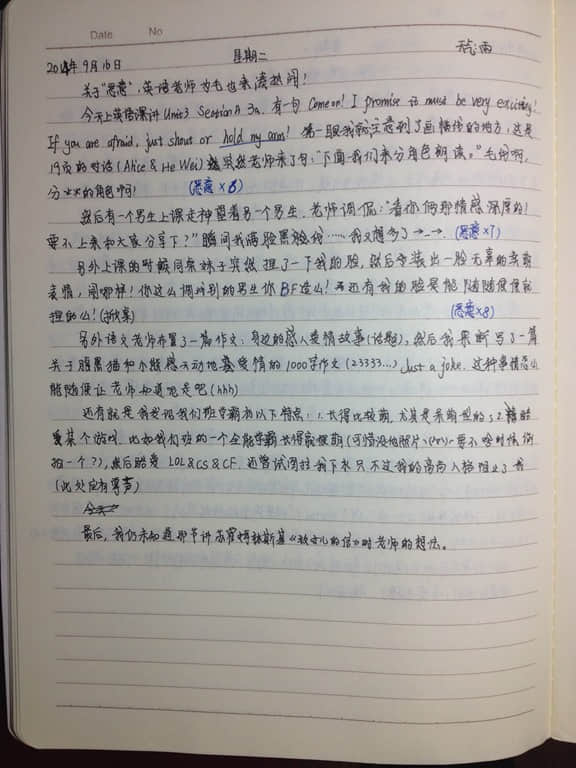 Date No
2014年9月16日 星期二 天气:雨
关于"恶意",英语老师为毛也来凑热闹!
今天上英语课讲 Unit3 Section A 3a. 有一句 Come on! I promise it must be very exciting!
If you are afraid, just shout or hold my arms! 第一眼我就注意到了画横线的地方,这是
19页的对话(Alice & He Wei) 突然老师来了句:"下面我们来分角色朗读。"毛线啊,
分××的角色啊! (恶意×6)
然后有一个男生上课走神望着另一个男生,老师调侃:"看你俩那情感深厚的!
要不上来和大家分享下?"瞬间我满脸黑线……我又想多了→_→ (恶意×7)
另外上课的时候同桌妹子突然捏了一下我的脸,然后夸装出一脸无辜的
表情,闹哪样!你这么调戏别的男生你BF造么!还有我的脸是能随随便便就
捏的么!(掀桌) (恶意×8)
另外语文老师布置了一篇作文:身边的感人爱情故事(话题),然后我果断写了一篇
关于腹黑猫和小熊感天动地爱情的1000字作文(23333…) Just a joke. 这种事情怎么
能随便让老师知道呢是吧(hhh)
还有就是我发现我们班学霸有以下特点:1.长得比较萌,尤其是呆萌型的;2.酷
爱某个游戏,比如我们班的一个全能学霸长得就很萌(可惜没他照片 要不啥时候偷
拍一个?),然后酷爱 LOL&CS&CF,还尝试图拉我下水只不过我的高尚人格阻止了我
(此处应有掌声)
最后,我仍未知道那节讲苏霍姆林斯基《致女儿的信》时老师的想法。